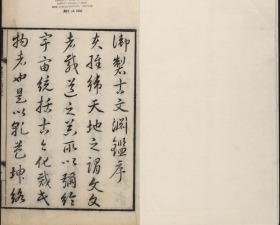 御製古文淵鑑序
夫經緯天地之謂文文
者載道之器所以彌綸
宇宙統括古今化裁民
物者也是以乾苞坤絡